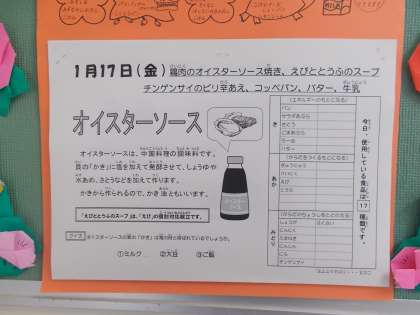 1月17日(金) 鶏肉のオイスターソース焼き、えびととうふのスープ
チンゲンサイのピリ辛あえ、コッペパン、バター、牛乳
オイスターソース
オイスターソースは、中国料理の調味料です。
貝の「かき」に塩を加えて発酵させて、しょうゆや
水あめ、さとうなどを加えて作ります。
かきから作られるので、かき油ともいいます。
「えびととうふのスープ」は、「えび」の個別対応献立です。
クイズ オイスターソースの素の「かき」は海の何と呼ばれているでしょうか。
①ミルク ②大豆 ③ご飯
オイスター
ソース
今日、使用している食品は 17 種類です。
き
(エネルギーのもとになる)
パン
さとう
ごまあぶら
ラー油
バター
あか
(からだをつくるもとになる)
ぎゅうにゅう
けいにく
えび
とうふ
みどり
(からだのちょうしをととのえる)
しょうが
にんにく
たまねぎ
にんじん
にら
チンゲンサイ